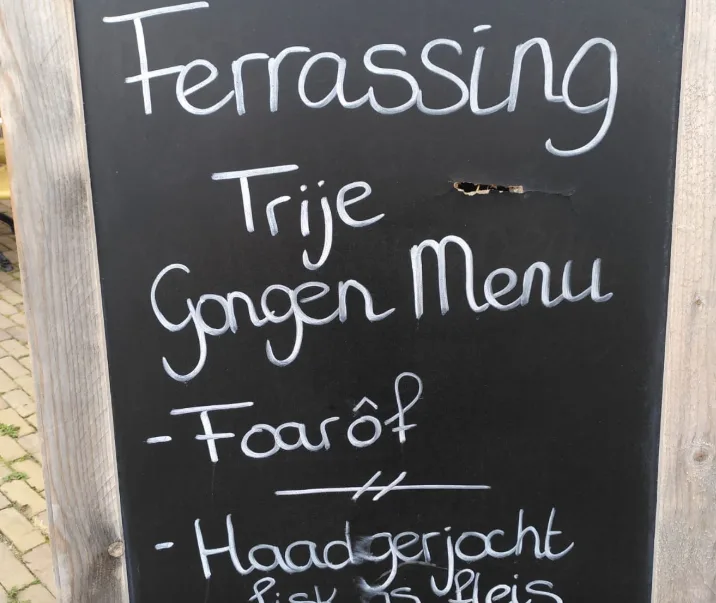 Ferrassing
Trije
Gongen Menu
- Foarôf
- Haadgerjocht
fisk as fleis